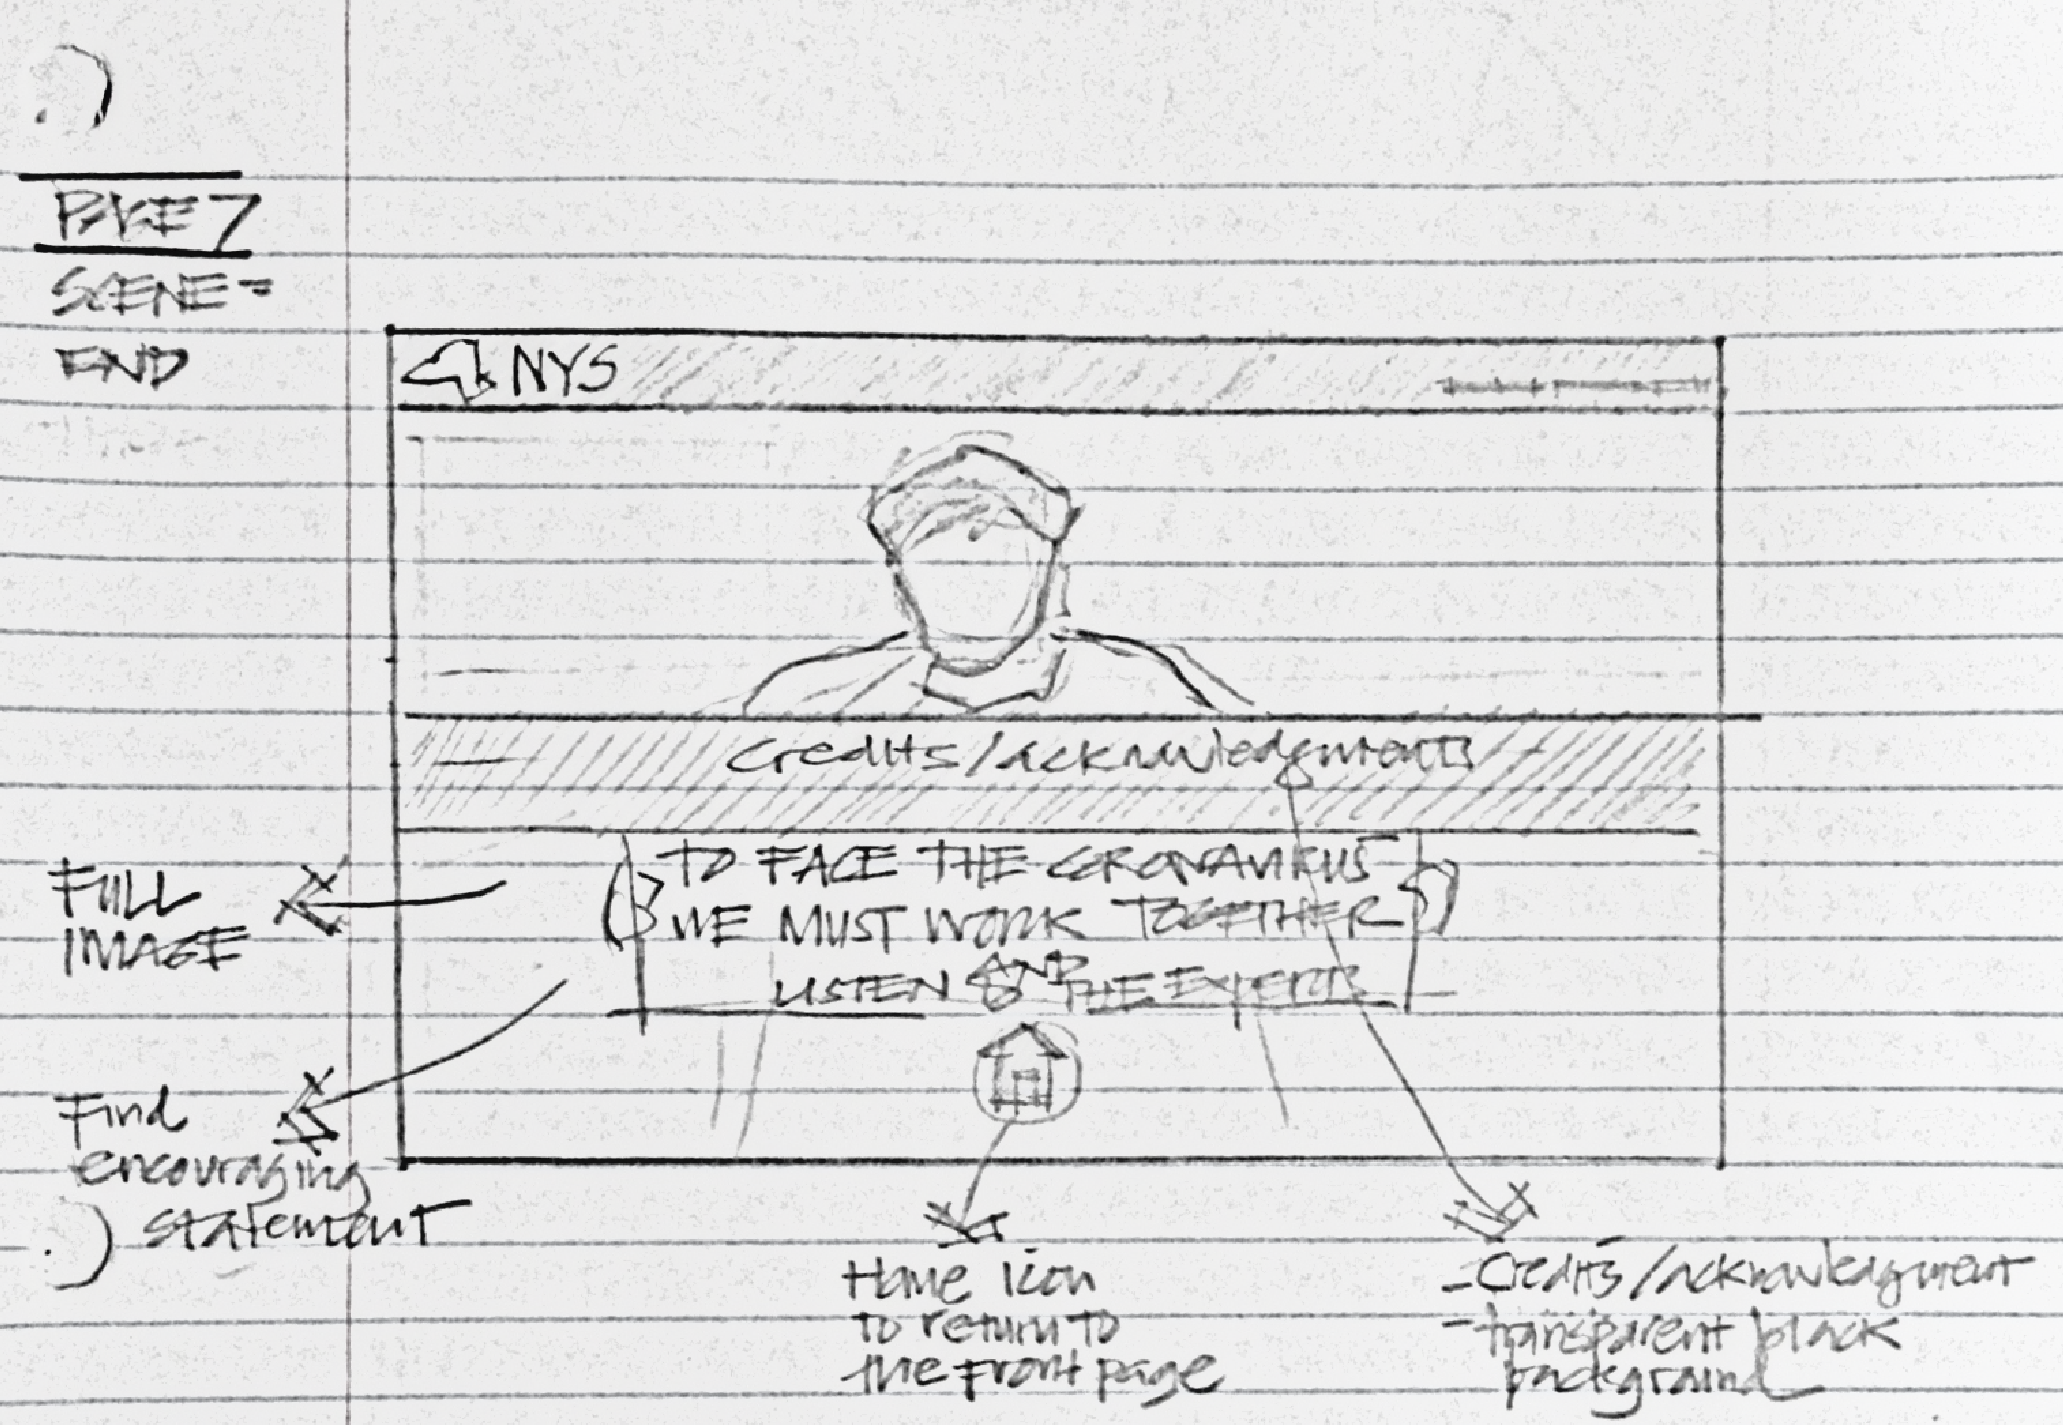 PAGE 7
SCENE -
END
NYS
Credits/acknowledgments
TO FACE THE CORONAVIRUS
WE MUST WORK TOGETHER
AND
LISTEN THE EXPERTS
FULL
IMAGE
Find
encouraging
statement
Home icon
to return to
the front page
- Credits/acknowledgment
- transparent black
background